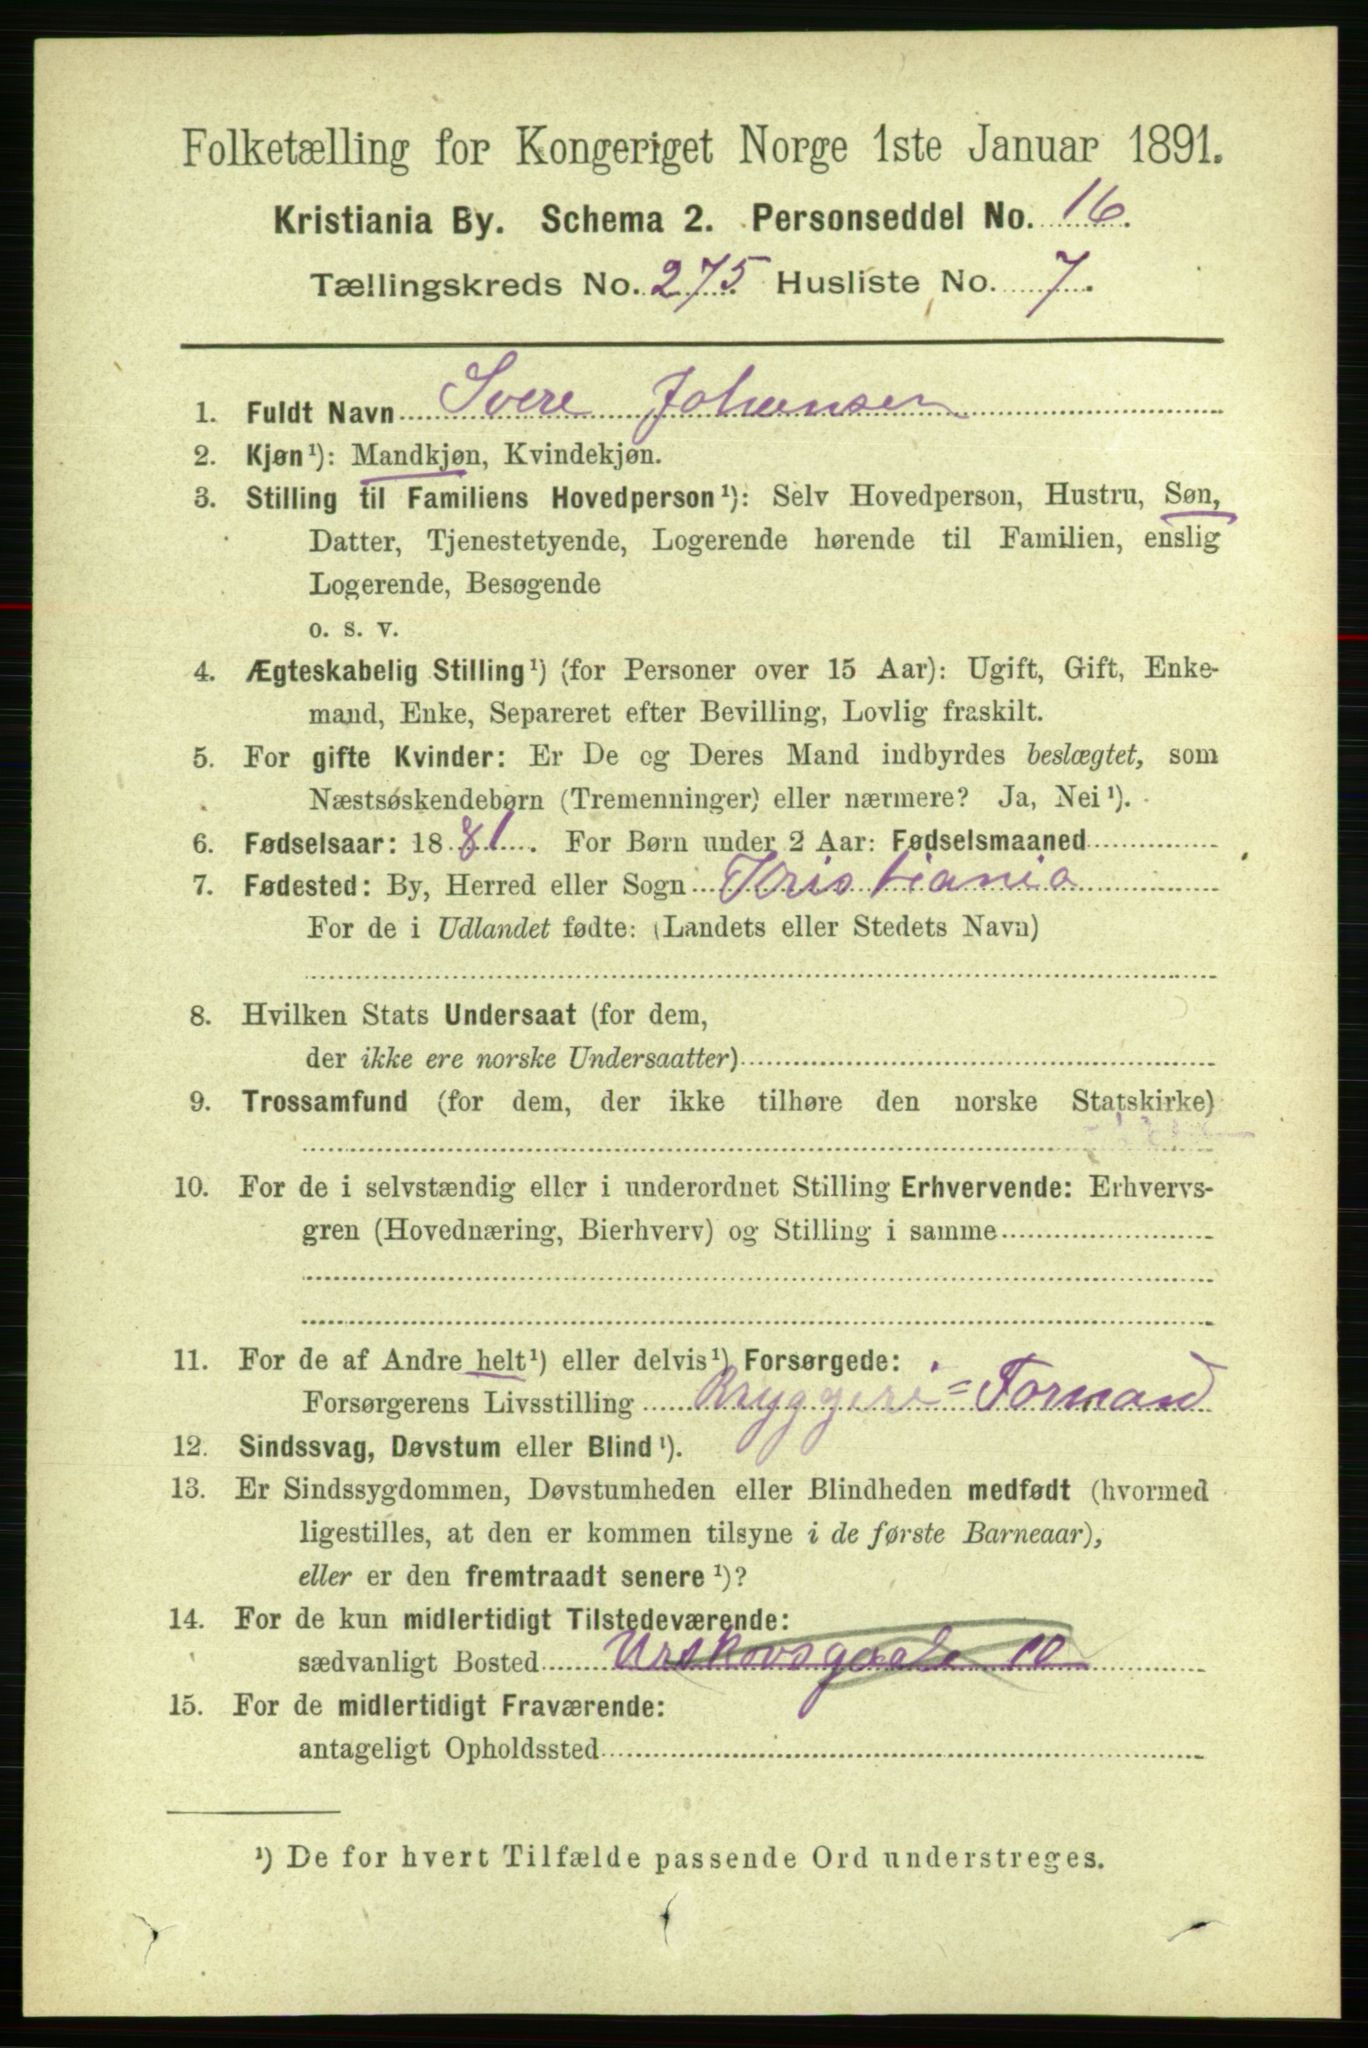 Folketælling for Kongeriget Norge 1ste Januar 1891.
Kristiania By. Schema 2. Personseddel No. 16.
Tællingskreds No. 275 Husliste No. 7.
1. Fuldt Navn Svere Johansen
2. Kjøn ¹): Mandkjøn, Kvindekjøn.
3. Stilling til Familiens Hovedperson ¹): Selv Hovedperson, Hustru, Søn,
Datter, Tjenestetyende, Logerende hørende til Familien, enslig
Logerende, Besøgende
o. s. v.
4. Ægteskabelig Stilling ¹) (for Personer over 15 Aar): Ugift, Gift, Enke-
mand, Enke, Separeret efter Bevilling, Lovlig fraskilt.
5. For gifte Kvinder: Er De og Deres Mand indbyrdes beslægtet, som
Næstsøskendebørn (Tremenninger) eller nærmere? Ja, Nei ¹).
6. Fødselsaar: 1881. For Børn under 2 Aar: Fødselsmaaned
7. Fødested: By, Herred eller Sogn Kristiania
For de i Udlandet fødte: (Landets eller Stedets Navn)
8. Hvilken Stats Undersaat (for dem,
der ikke ere norske Undersaatter)
9. Trossamfund (for dem, der ikke tilhøre den norske Statskirke)
10. For de i selvstændig eller i underordnet Stilling Erhvervende: Erhvervs-
gren (Hovednæring, Bierhverv) og Stilling i samme
11. For de af Andre helt ¹) eller delvis ¹) Forsørgede:
Forsørgerens Livsstilling Bryggeri=Formand
12. Sindssvag, Døvstum eller Blind ¹).
13. Er Sindssygdommen, Døvstumheden eller Blindheden medfødt (hvormed
ligestilles, at den er kommen tilsyne i de første Barneaar),
eller er den fremtraadt senere ¹)?
14. For de kun midlertidigt Tilstedeværende:
sædvanligt Bosted Urskovsgade 10
15. For de midlertidigt Fraværende:
antageligt Opholdssted
¹) De for hvert Tilfælde passende Ord understreges.